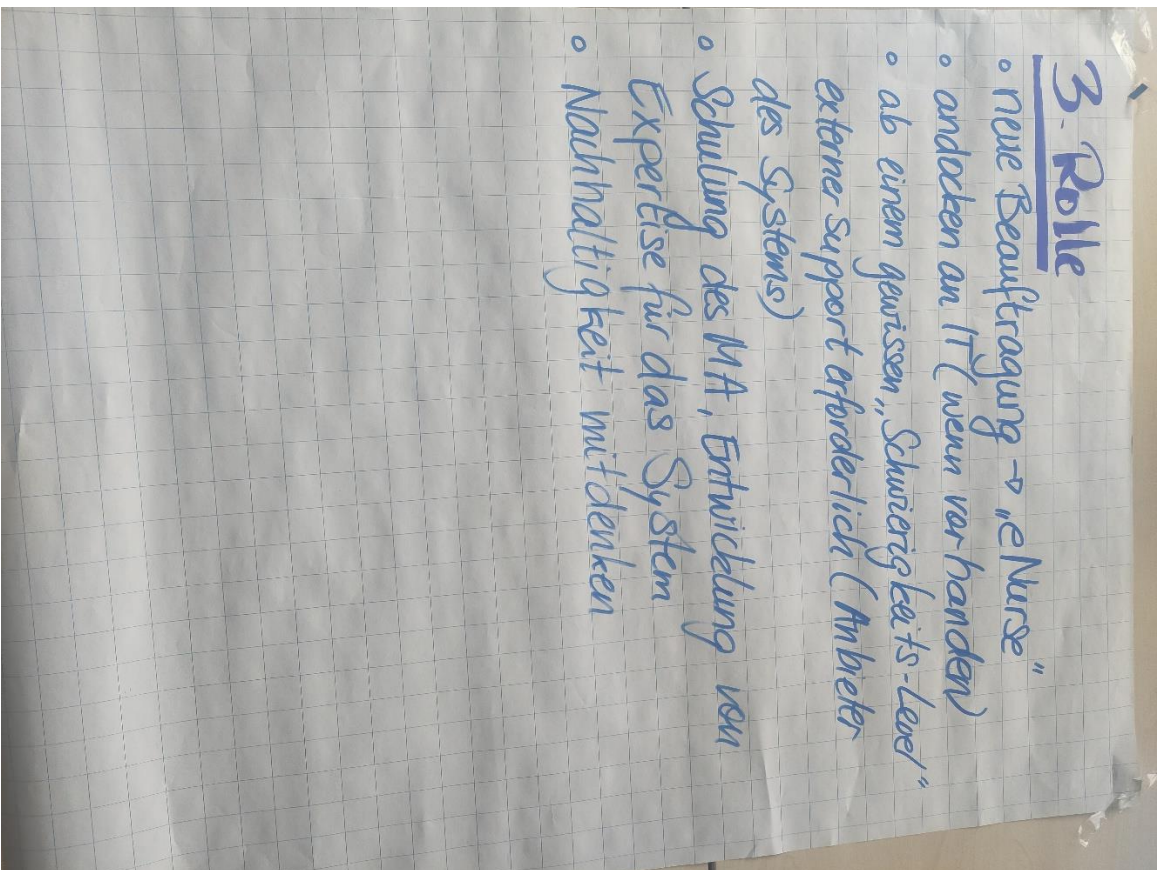 3. Rolle
◦ neue Beauftragung → „eNurse"
◦ andocken an IT (wenn vorhanden)
◦ ab einem gewissen „Schwierigkeits-Level"
externer Support erforderlich (Anbieter
des Systems)
◦ Schulung des MA, Entwicklung von
Expertise für das System
◦ Nachhaltigkeit mitdenken